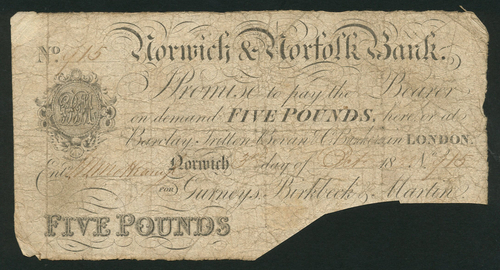 No. 715 Norwich & Norfolk Bank.
Promise to pay the Bearer
on demand FIVE POUNDS, here or at
Barclay, Tritton & Bevan Bankers in LONDON.
Ent Norwich day of Oct 18 No 715
For Gurneys, Birkbeck & Martin
FIVE POUNDS